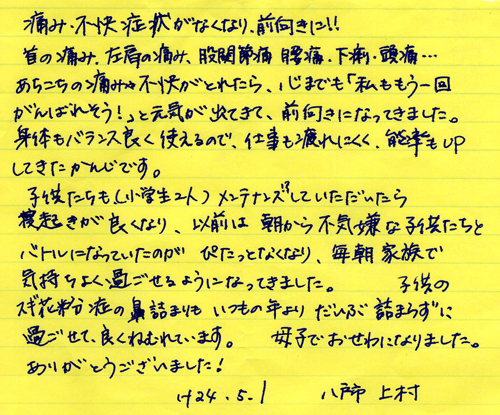 痛み・不快症状がなくなり、前向きに!!
首の痛み、左肩の痛み、股関節痛 腰痛・下痢・頭痛…
あちこちの痛みや不快がとれたら、心までも「私ももう一回
がんばれそう!」と元気が出てきて、前向きになってきました。
身体もバランス良く使えるので、仕事も疲れにくく、能率もUP
してきたかんじです。
子供たちも(小学生2人)メンテナンスしていただいたら
寝起きが良くなり、以前は朝から不気嫌な子供たちと
バトルになっていたのが ぴたっとなくなり、毎朝家族で
気持ちよく過ごせるようになってきました。 子供の
スギ花粉症の鼻詰まりもいつもの年よりだいぶ詰まらずに
過ごせて、良くねむれています。 母子でおせわになりました。
ありがとうございました!
H24.5.1 八戸市 上村